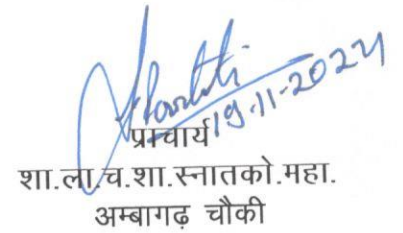 19.11-2024
प्राचार्य
शा.ला.च.शा.स्नातको.महा.
अम्बागढ़ चौकी